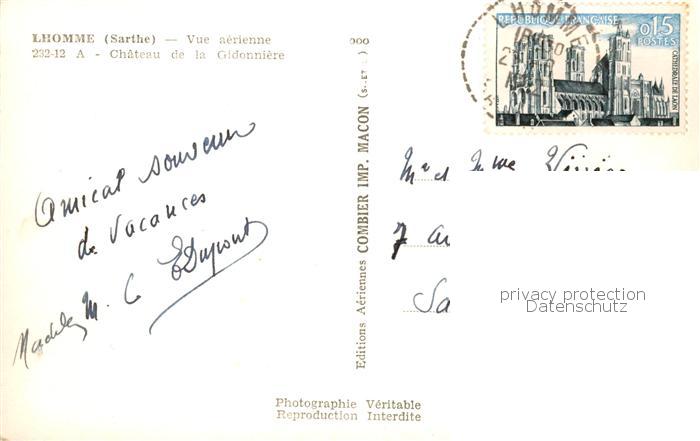 LHOMME (Sarthe) — Vue aérienne
232-12 A - Château de la Gidonnière
Amical souvenir
de vacances
M. C EDupont
Editions Aériennes COMBIER IMP. MACON
Photographie Véritable
Reproduction Interdite
LHOMME
REPUBLIQUE FRANÇAISE 0,15
POSTES
CATHEDRALE DE LAON
Mr et Mme
7
Sa
privacy protection
Datenschutz